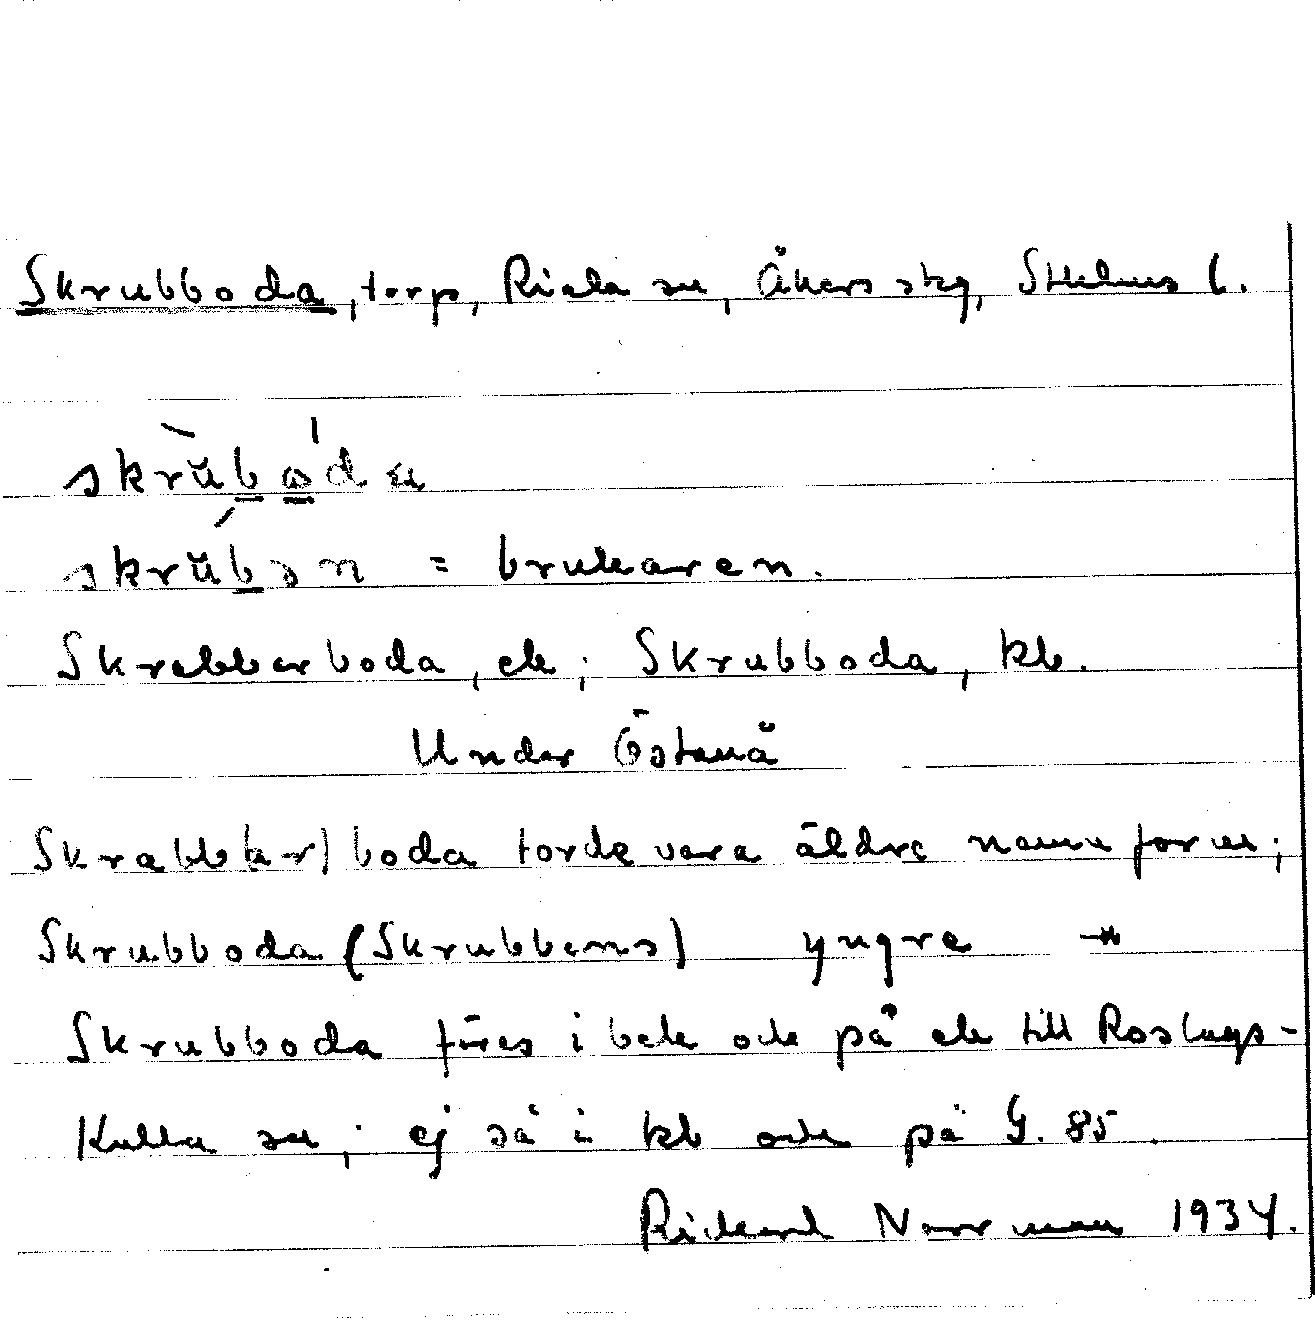 Skrubboda, torp, Riala sn, Åkers skg, Sthlms l.
skrŭbωda
skrŭbən = brukaren.
Skrabbarboda, ek; Skrubboda, kb.
Under Östanå
Skrabb(ar)boda torde vara äldre namnform;
Skrubboda (Skrubbens) yngre -"-
Skrubboda föres i bek och på ek till Roslags-
Kulla sn; ej så i kb och på G. 85.
Rickard Norrman 1934.